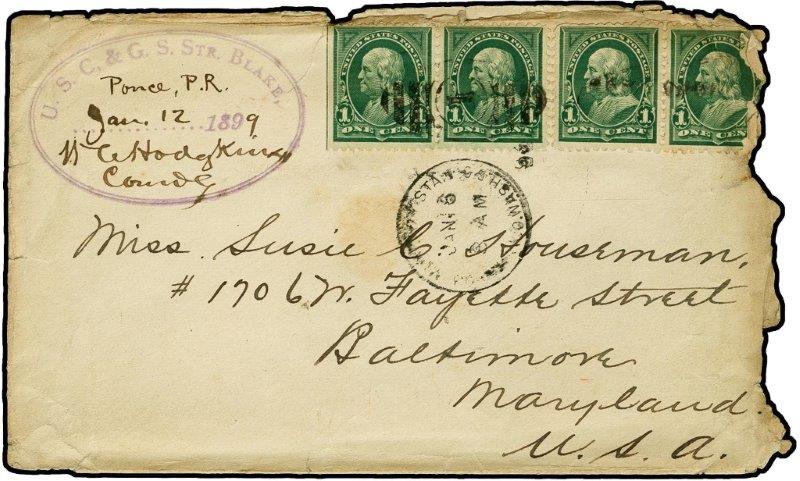 U. S. C. & G. S. STR. BLAKE,
Ponce, P.R.
Jan. 12 1899
W C Hodgkins
Comdg
UNITED STATES POSTAGE
UNITED STATES POSTAGE
UNITED STATES POSTAGE
1 ONE CENT 1
1 ONE CENT 1
1 ONE CENT 1
1 ONE CENT
JAN 16
AM
Miss. Susie C. Houserman,
# 1706 W. Fayette Street
Baltimore
Maryland.
U. S. A.